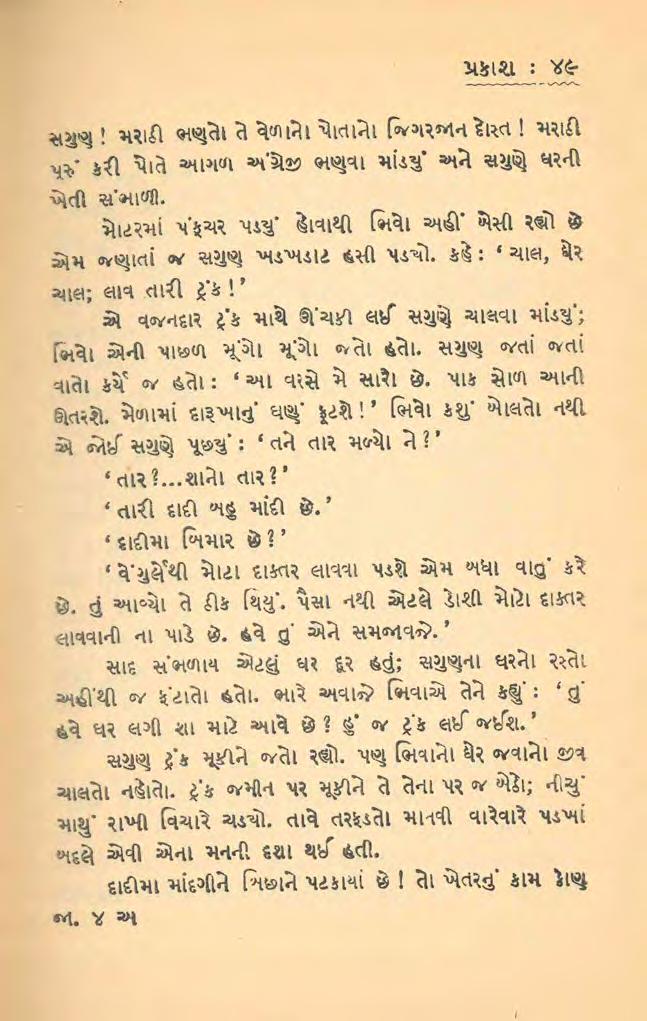 પ્રકાશ : ૪૯
સગુણ ! મરાઠી ભણુતો તે વેળાનો પોતાનો જિગરજાન દોસ્ત ! મરાઠી
પૂરું કરી પોતે આગળ અંગ્રેજી ભણવા માંડયું અને સગુણે ઘરની
ખેતી સંભાળી.
મોટરમાં પંકચર પડયું હોવાથી ભિવો અહીં બેસી રહ્યો છે
એમ જણાતાં જ સગુણ ખડખડાટ હસી પડયો. કહે : ‘ ચાલ, ઘેર
ચાલ; લાવ તારી ટ્રંક !’
એ વજનદાર ટ્રંક માથે ઊંચકી લઈ સગુણે ચાલવા માંડયું;
ભિવો એની પાછળ મૂંગો મૂંગો જતો હતો. સગુણ જતાં જતાં
વાતો કર્યે જ હતો : ‘ આ વરસે મે સારો છે. પાક સોળ આની
ઊતરશે. મેળામાં દારૂખાનું ઘણું ફૂટશે !’ ભિવો કશું બોલતો નથી
એ જોઈ સગુણે પૂછ્યું : ‘ તને તાર મળ્યો ને ?’
‘ તાર ?...શાનો તાર ?’
‘ તારી દાદી બહુ માંદી છે. ’
‘ દાદીમા બિમાર છે ?’
‘ વેંગુર્લેથી મોટા દાક્તર લાવવા પડશે એમ બધા વાતું કરે
છે. તું આવ્યો તે ઠીક થિયું. પૈસા નથી એટલે ડોશી મોટો દાક્તર
લાવવાની ના પાડે છે. હવે તું એને સમજાવજે. ’
સાદ સંભળાય એટલું ઘર દૂર હતું; સગુણના ઘરનો રસ્તો
અહીંથી જ ફંટાતો હતો. ભારે અવાજે ભિવાએ તેને કહ્યું : ‘ તું
હવે ઘર લગી શા માટે આવે છે ? હું જ ટ્રંક લઈ જઈશ. ’
સગુણ ટ્રંક મૂકીને જતો રહ્યો. પણ ભિવાનો ઘેર જવાનો જીવ
ચાલતો નહોતો. ટ્રંક જમીન પર મૂકીને તે તેના પર જ બેઠો; નીચું
માથું રાખી વિચારે ચડયો. તાવે તરફડતો માનવી વારેવારે પડખાં
બદલે એવી એના મનની દશા થઈ હતી.
દાદીમા માંદગીને બિછાને પટકાયાં છે ! તો ખેતરનું કામ કોણ
જા. ૪ અ